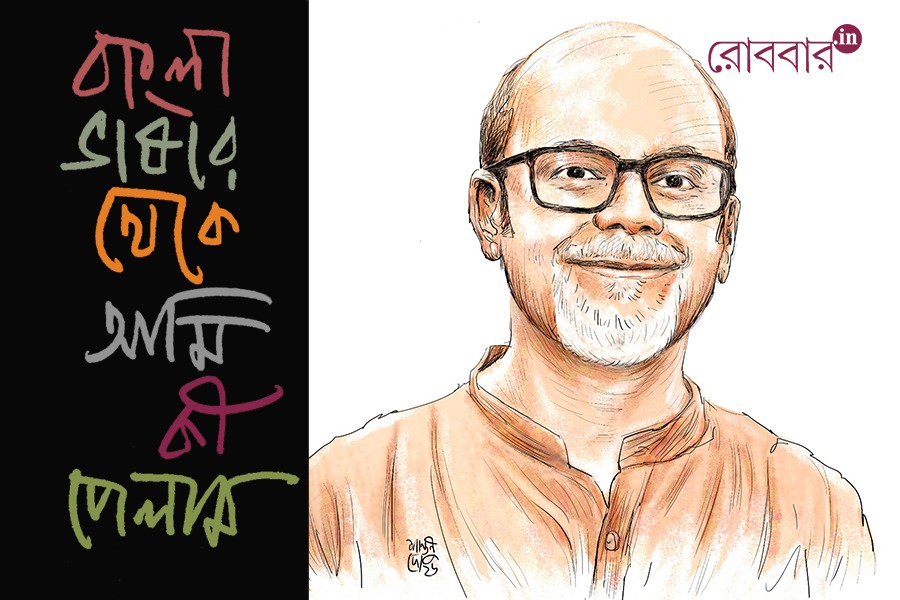 বাংলা
ভাষার
থেকে
আমি
কী
পেলাম
রোববার.in